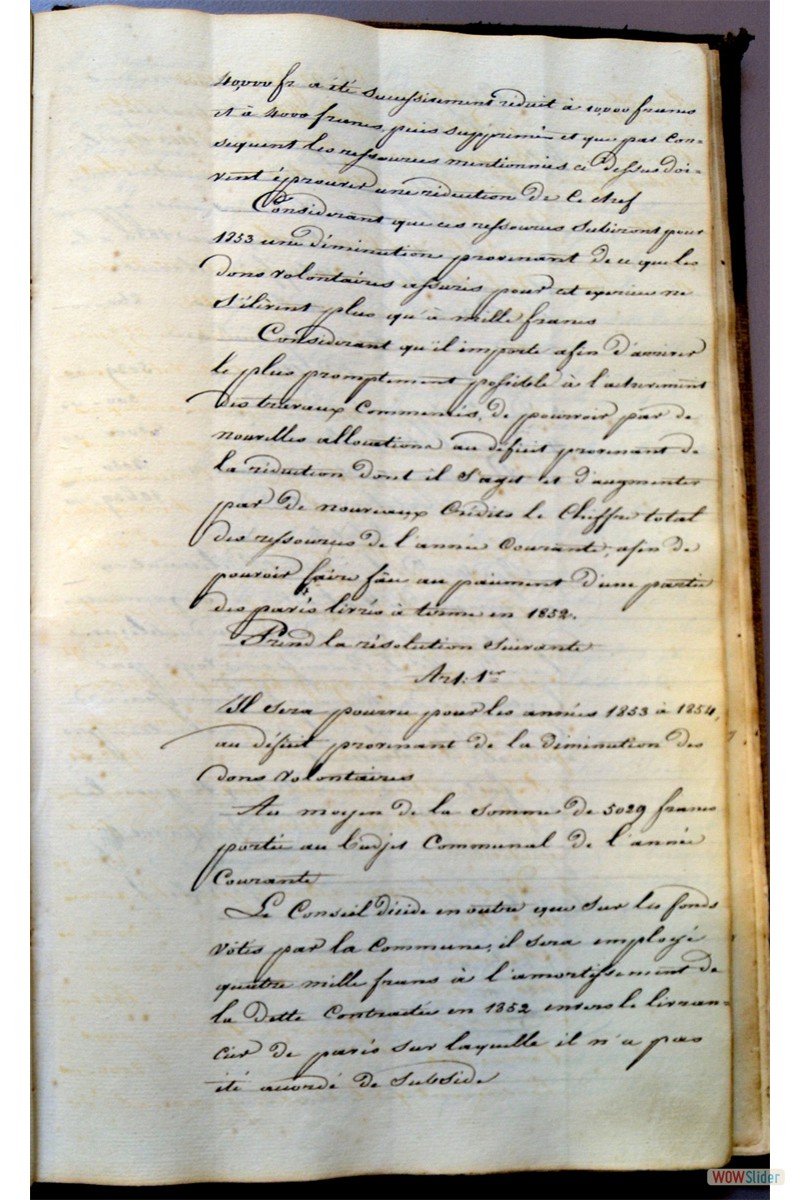 40,000 fr a été successivement réduit à 10,000 francs
et à 4000 francs, puis supprimé et que par con-
sequent les ressources mentionnées ci dessus doi-
vent éprouver une réduction de ce chef
Considerant que ces ressources subiront pour
1853 une diminution provenant de ce que les
dons volontaires assurés pour cet exercice ne
s'élèvent plus qu'à mille francs
Considerant qu'il importe afin d'arriver
le plus promptement possible à l'achevement
des travaux commencés, de pourvoir par de
nouvelles allocations au déficit provenant de
la réduction dont il s'agit et d'augmenter
par de nouveaux Crédits le Chiffre total
des ressources de l'année Courante, afin de
pouvoir faire face au paiement d'une partie
des pavés livrés à terme en 1852.
Prend la résolution suivante
Art. 1er
Il sera pourvu pour les années 1853 à 1854,
au déficit provenant de la diminution des
dons volontaires
Au moyen de la somme de 5029 francs
portée au budjet Communal de l'année
Courante
Le Conseil décide en outre que sur les fonds
votés par la Commune, il sera employé
quatre mille francs à l'amortissement de
la Dette Contractée en 1852 envers le livran-
cier de pavés sur laquelle il n'a pas
été accordé de subside
WOWSlider